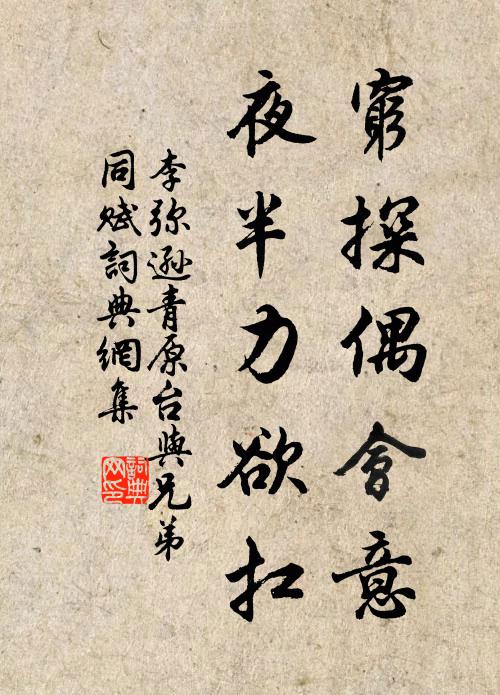 窮探偶會意
夜半力欲扛
李弥遜青原台與兄弟
同賦詞典網集
詞典
网印